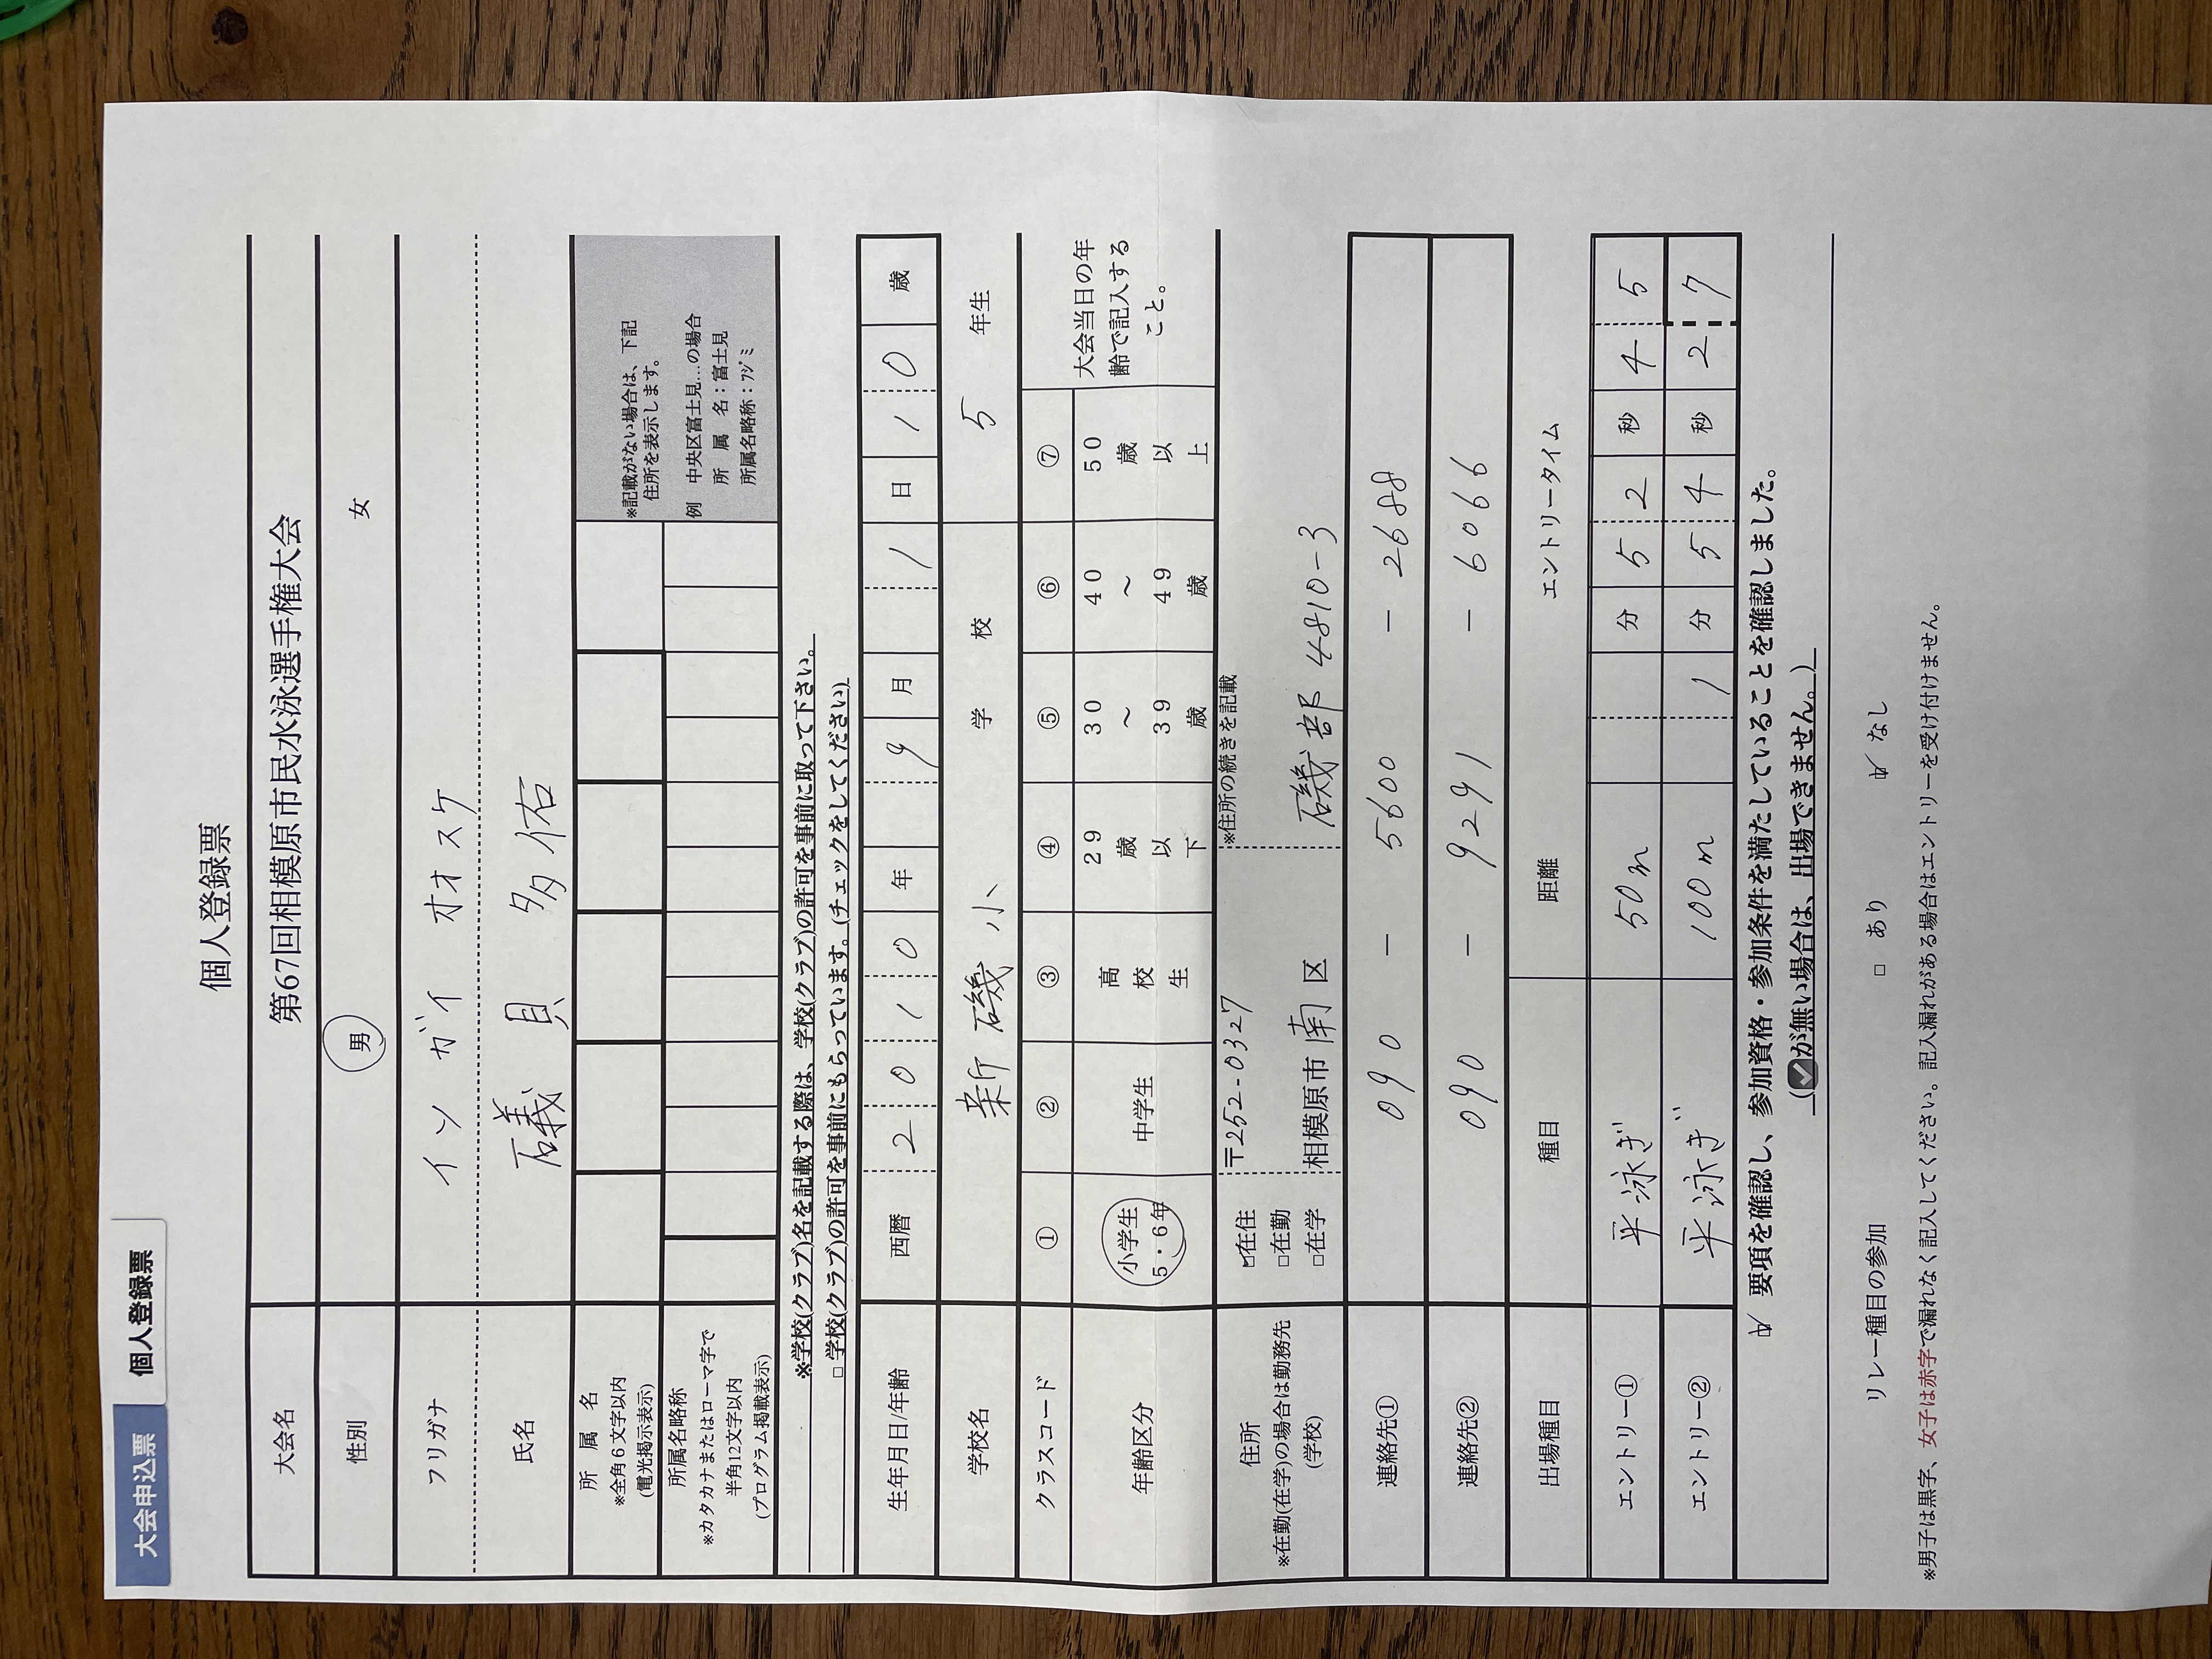 大会申込票 個人登録票
個人登録票
大会名 第67回相模原市民水泳選手権大会
性別 男 女
フリガナ イソ ガイ オオスケ
氏名 礒 貝 多佑
所 属 名
※全角6文字以内
(電光掲示表示)
※記載がない場合は、下記
住所を表示します。
例 中央区富士見…の場合
所 属 名：富士見
所属名略称：ﾌｼﾞﾐ
所属名略称
※カタカナまたはローマ字で
半角12文字以内
(プログラム掲載表示)
※学校(クラブ)名を記載する際は、学校(クラブ)の許可を事前に取って下さい。
□ 学校(クラブ)の許可を事前にもらっています。(チェックをしてください)
生年月日/年齢 西暦 2010 年 9 月 1 日 10 歳
学校名 新磯小 学 校 5 年生
クラスコード ① ② ③ ④ ⑤ ⑥ ⑦
大会当日の年
齢で記入する
こと。
年齢区分
小学生
5・6年
中学生
高校生
29歳以下
30～39歳
40～49歳
50歳以上
住所
※在勤(在学)の場合は勤務先
(学校)
☑在住
□在勤
□在学
〒252-0327
相模原市 南 区
※住所の続きを記載
磯部 4810-3
連絡先① 090 － 5600 － 2688
連絡先② 090 － 9291 － 6066
出場種目 種目 距離 エントリータイム
エントリー① 平泳ぎ 50m 分 52 秒 45
エントリー② 平泳ぎ 100m 1 分 54 秒 27
☑ 要項を確認し、参加資格・参加条件を満たしていることを確認しました。
(☑が無い場合は、出場できません。)
リレー種目の参加 □ あり ☑ なし
※男子は黒字、女子は赤字で漏れなく記入してください。記入漏れがある場合はエントリーを受け付けません。